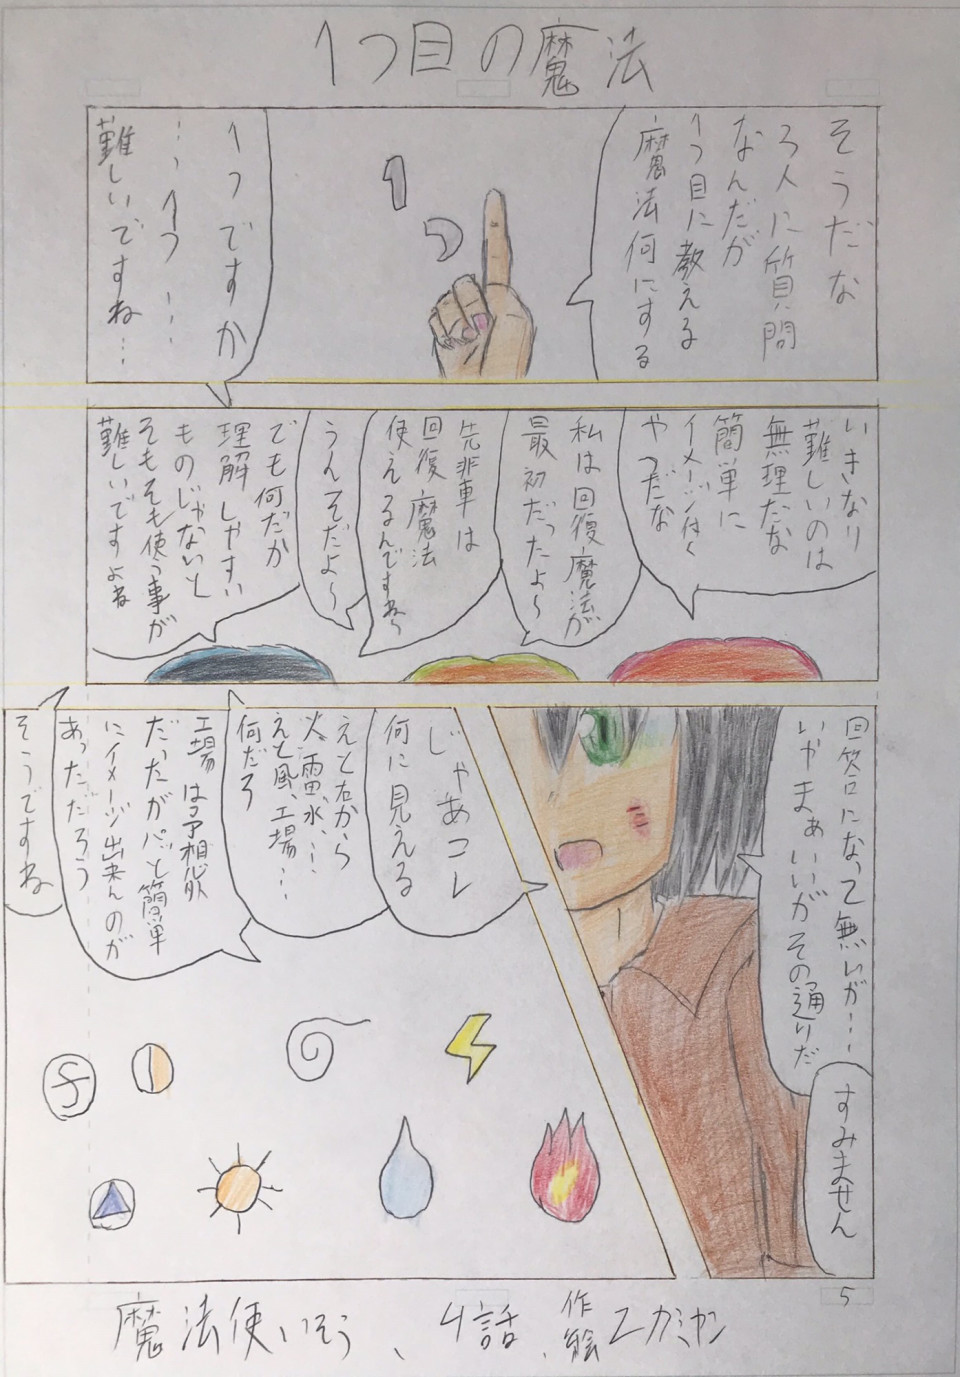 1つ目の魔法
そうだな
3人に質問
なんだが
1つ目に教える
魔法何にする
1つですか
…っ1つ…
難しいですね…
いきなり
難しいのは
無理だな
簡単に
イメージ付く
やつだな
私は回復魔法が
最初だったよ〜
先輩は
回復魔法
使えるんですね〜
うんそだよ〜
でも何だか
理解しやすい
ものじゃないと
そもそも使う事が
難しいですよね
回答になって無いが…
いやまぁいいがその通りだ
すみません
じゃあコレ
何に見える
えと右から
火、雷、水、…
えと風、工場…
何だろ
工場は予想外
だったがパッと簡単
にイメージ出来んのが
あっただろう
そうですね
1
5
魔法使いそう、4話、作絵エカミヤン